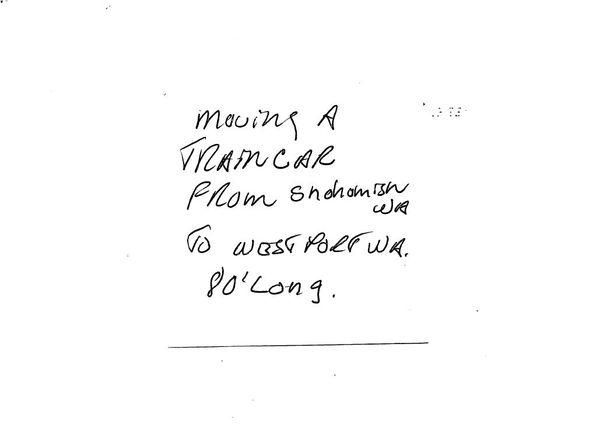 Moving A
TRAIN CAR
FROM Snohomish
WA
TO WESTPORT WA.
80' Long.